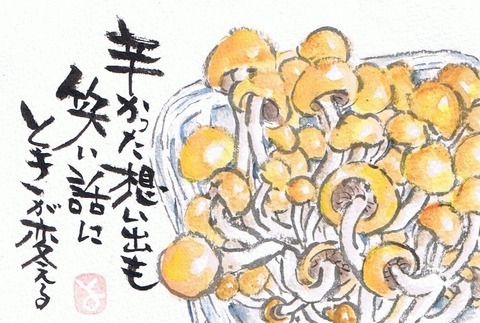 辛かった想い出も
笑い話に
ときが変える